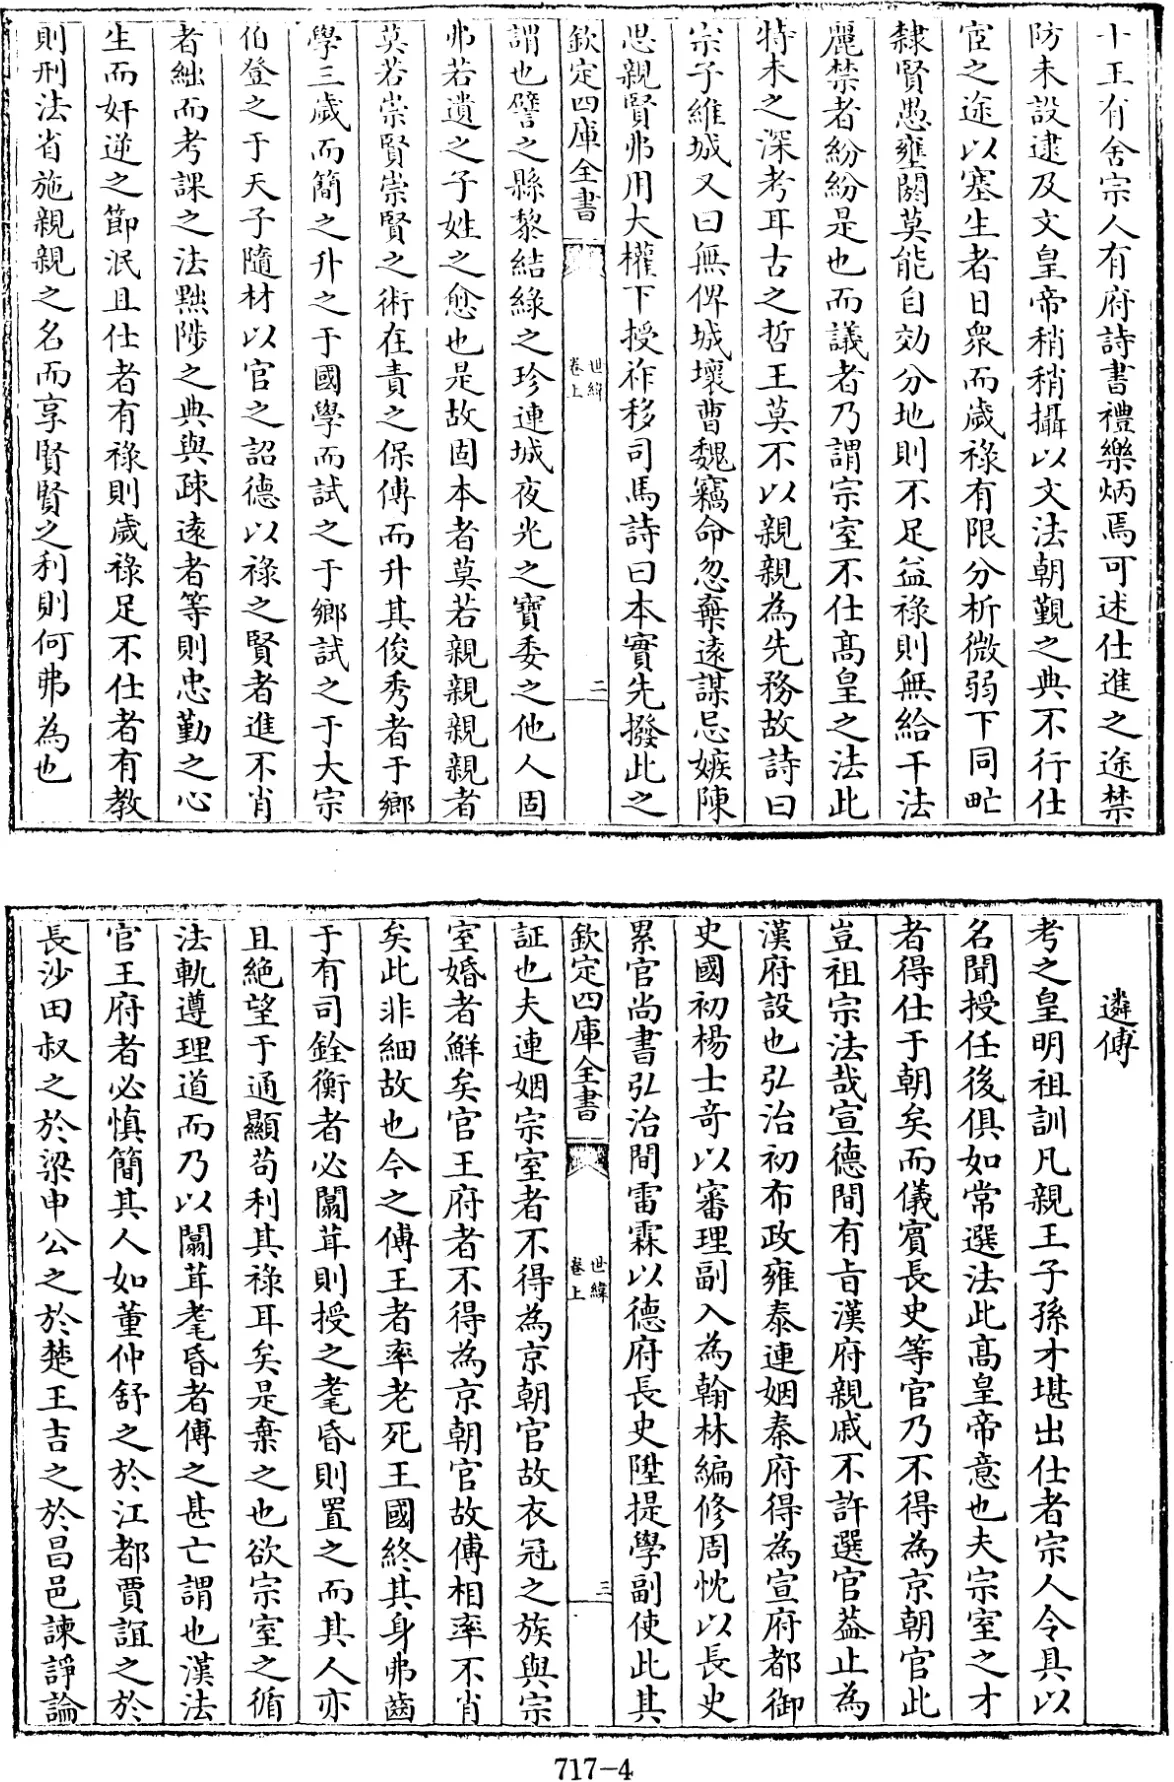 十王有舍宗人有府詩書禮樂炳焉可述仕進之途禁
防未設逮及文皇帝稍稍攝以文法朝覲之典不行仕
宦之途以塞生者日衆而歲祿有限分析微弱下同甿
隸賢愚壅閼莫能自効分地則不足益祿則無給干法
麗禁者紛紛是也而議者乃謂宗室不仕髙皇之法此
特未之深考耳古之哲王莫不以親親為先務故詩曰
宗子維城又曰無俾城壞曹魏竊命忽棄逺謀忌嫉陳
思親賢弗用大權下授祚移司馬詩曰本實先撥此之
欽定四庫全書
世緯
卷上
二
謂也譬之縣黎結綠之珍連城夜光之寶委之他人固
弗若遺之子姓之愈也是故固本者莫若親親親親者
莫若崇賢崇賢之術在責之保傅而升其俊秀者于鄉
學三歲而簡之升之于國學而試之于鄉試之于大宗
伯登之于天子隨材以官之詔德以祿之賢者進不肖
者絀而考課之法黜陟之典與疎逺者等則忠勤之心
生而奸逆之節泯且仕者有祿則歲祿足不仕者有教
則刑法省施親親之名而享賢賢之利則何弗為也
遴傅
考之皇明祖訓凡親王子孫才堪出仕者宗人令具以
名聞授任後俱如常選法此髙皇帝意也夫宗室之才
者得仕于朝矣而儀賓長史等官乃不得為京朝官此
豈祖宗法哉宣德間有旨漢府親戚不許選官葢止為
漢府設也弘治初布政雍泰連姻秦府得為宣府都御
史國初楊士奇以審理副入為翰林編修周忱以長史
累官尚書弘治間雷霖以德府長史陞提學副使此其
欽定四庫全書
世緯
卷上
三
証也夫連姻宗室者不得為京朝官故衣冠之族與宗
室婚者鮮矣官王府者不得為京朝官故傅相率不肖
矣此非細故也今之傅王者率老死王國終其身弗齒
于有司銓衡者必闒茸則授之耄昏則置之而其人亦
且絶望于通顯茍利其祿耳矣是棄之也欲宗室之循
法軌遵理道而乃以闒茸耄昏者傅之甚亡謂也漢法
官王府者必慎簡其人如董仲舒之於江都賈誼之於
長沙田叔之於梁申公之於楚王吉之於昌邑諫諍論
717-4